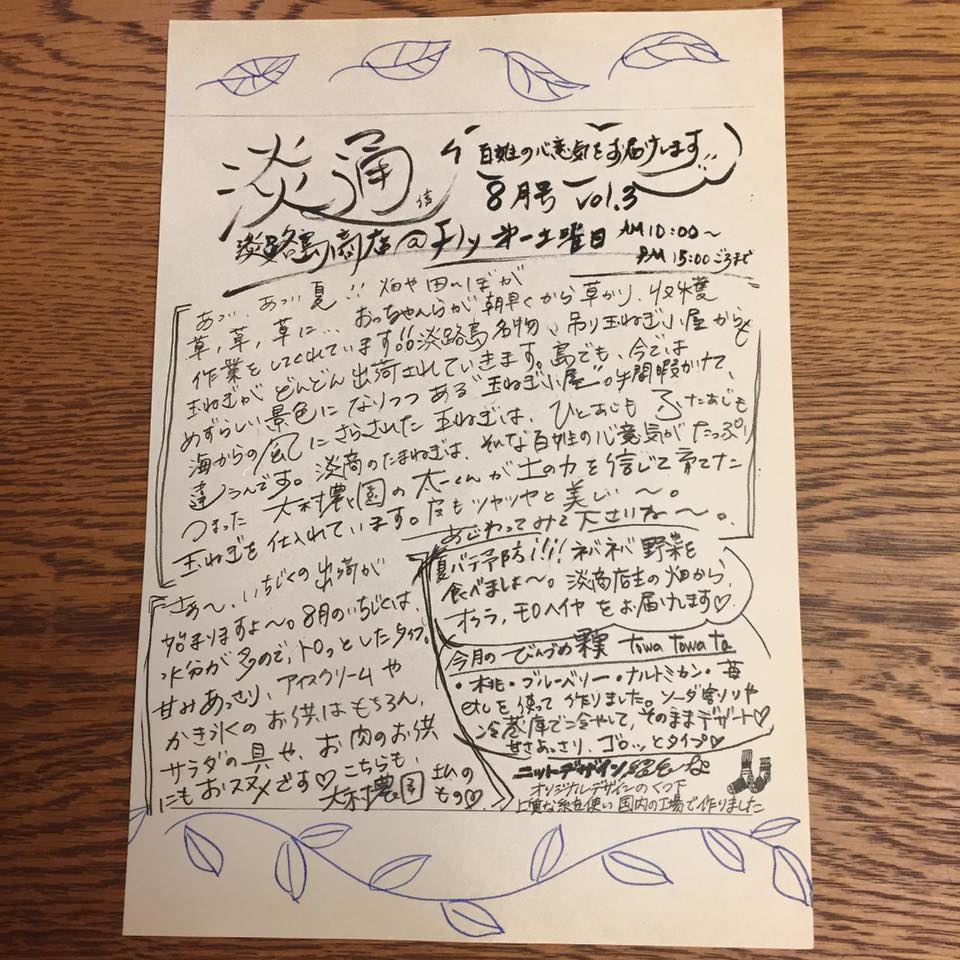 淡通信
百姓の心意気をお届けします
8月号 vol.3
淡路島商店@エリソ 第一土曜日 AM10:00〜
PM 15:00ごろまで
あづい、あづい夏!! 畑や田んぼが
草,草,草に... おっちゃんらが朝早くから草かり、収穫
作業をしてくれています!!淡路島名物、吊り玉ねぎ小屋からも
玉ねぎがどんどん出荷されていきます。島でも、今では
めずらしい景色になりつつある"玉ねぎ小屋"。手間暇かけて、
海からの風にさらされた玉ねぎは、ひとあじもふたあじも
違うんです。淡商のたまねぎは、そんな百姓の心意気がたっぷり
つまった大村農園の太一くんが土の力を信じて育てた
玉ねぎを仕入れています。皮もツヤツヤと美しい〜。
あじわってみて下さいね〜。
さぁ〜、いちじくの出荷が
始まりますよ〜。8月のいちじくは、
水分が多めで、トロっとしたタイプ。
甘みあっさり、アイスクリームや
かき氷のお供はもちろん、
サラダの具や、お肉のお供
にもおススメです♡ こちらも、
大村農園さんのもの♡
夏バテ予防!!! ネバネバ野菜を
食べましょ〜。淡商店主の畑から、
オクラ,モロヘイヤをお届けします♡
今月のびんづめ果実 towa towa ta
・桃・ブルーベリー・ナルトミカン・苺
etcを使って作りました。ソーダ割りや
冷蔵庫で冷やして,そのままデザート♡
甘さあっさり、ゴロッとタイプ♡
ニットデザイン
オリジナルデザインのくつ下
上質な糸を使い国内の工場で作りました